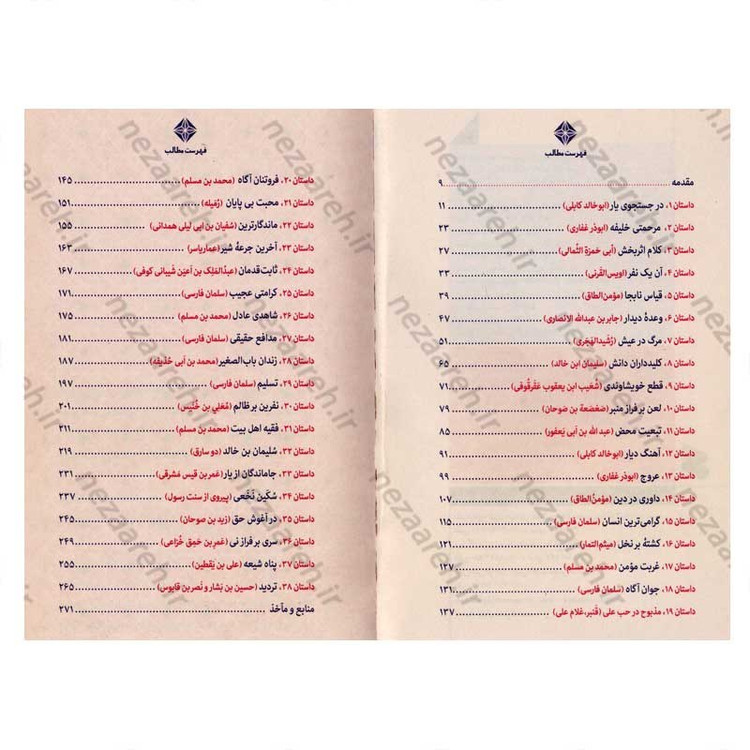 فهرست مطالب
مقدمه ........ ۹
داستان ۱، در جستجوی یار (ابوخالد کابلی) ........ ۱۱
داستان ۲، مرحمتی خلیفه (ابوذر غفاری) ........ ۲۳
داستان ۳، کلام اثربخش (أبی حمزة الثُمالی) ........ ۲۷
داستان ۴، آن یک نفر (اویس القَرنی) ........ ۳۳
داستان ۵، قیاس نابجا (مؤمن الطاق) ........ ۳۹
داستان ۶، وعدهٔ دیدار (جابر بن عبدالله الانصاری) ........ ۴۷
داستان ۷، مرگ در عیش (رُشَیدالهَجَری) ........ ۵۱
داستان ۸، کلیدداران دانش (سلیمان ابن خالد) ........ ۶۵
داستان ۹، قطع خویشاوندی (شُعَیب ابن یعقوب عَقَرقُوفی) ........ ۷۱
داستان ۱۰، لعن بر فراز منبر (صَعصَعة بن صَوحان) ........ ۷۹
داستان ۱۱، تبعیت محض (عبدالله بن أبی یَعفور) ........ ۸۵
داستان ۱۲، آهنگ دیار (ابوخالد کابلی) ........ ۹۱
داستان ۱۳، عروج (ابوذر غفاری) ........ ۹۹
داستان ۱۴، داوری در دین (مؤمنُ الطاق) ........ ۱۰۷
داستان ۱۵، گرامی‌ترین انسان (سلمان فارسی) ........ ۱۱۵
داستان ۱۶، کشتهٔ بر نخل (میثم التمار) ........ ۱۲۱
داستان ۱۷، غربت مؤمن (محمد بن مسلم) ........ ۱۲۷
داستان ۱۸، جوان آگاه (سَلمان فارسی) ........ ۱۳۱
داستان ۱۹، مذبوح در حب علی (قَنبر، غلام علی) ........ ۱۳۷
فهرست مطالب
داستان ۲۰، فروتنان آگاه (محمد بن مسلم) ........ ۱۴۵
داستان ۲۱، محبت بی پایان (زُمَیله) ........ ۱۵۱
داستان ۲۲، ماندگارترین (سُفیان بن ابی لیلی همدانی) ........ ۱۵۵
داستان ۲۳، آخرین جرعهٔ شیر (عمار یاسر) ........ ۱۶۳
داستان ۲۴، ثابت‌قدمان (عبدُالمَلِک بن أعیَن شَیبانی کوفی) ........ ۱۶۷
داستان ۲۵، کرامتی عجیب (سلمان فارسی) ........ ۱۷۱
داستان ۲۶، شاهدی عادل (محمد بن مسلم) ........ ۱۷۵
داستان ۲۷، مدافع حقیقی (سلمان فارسی) ........ ۱۸۱
داستان ۲۸، زندان باب الصغیر (محمد بن أبی حُذَیفه) ........ ۱۸۷
داستان ۲۹، تسلیم (سلمان فارسی) ........ ۱۹۷
داستان ۳۰، نفرین بر ظالم (مُعَلی بن خُنَیس) ........ ۲۰۱
داستان ۳۱، فقیه اهل بیت (محمد بن مسلم) ........ ۲۱۱
داستان ۳۲، سُلیمان بن خالد (دو سارق) ........ ۲۱۹
داستان ۳۳، جاماندگان از یار (عمر بن قیس مَشرقی) ........ ۲۳۱
داستان ۳۴، سُکَین نَخَعی (پیروی از سنت رسول) ........ ۲۳۷
داستان ۳۵، در آغوش حق (زید بن صوحان) ........ ۲۴۵
داستان ۳۶، سری بر فراز نی (عَمرِ بن حَمِق خُزاعی) ........ ۲۴۹
داستان ۳۷، پناه شیعه (علی بن یَقطین) ........ ۲۵۵
داستان ۳۸، تردید (حسین بن بَشار و نَصر بن قابوس) ........ ۲۶۵
منابع و مآخذ ........ ۲۷۱
nezaareh.ir